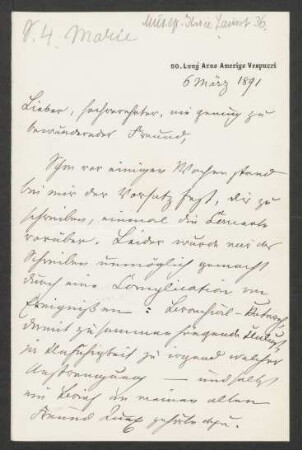 V. 4. Marie
20. Lung' Arno Amerigo Vespucci
6 März 1891
Lieber, hochverehrter, nie genug zu
bewundernder Freund,
Schon vor einigen Wochen stand
bei mir der Vorsatz fest, dir zu
schreiben, einmal die Concerte
vorüber. Leider wurde mir das
Schreiben unmöglich gemacht
durch eine Complication von
Ereignißen: Bronchial-
damit zusammen
in Unfähigkeit zu irgend welcher
Anstrengung — und selbst
ein Brief an meinen alten
Freund gehört dazu.